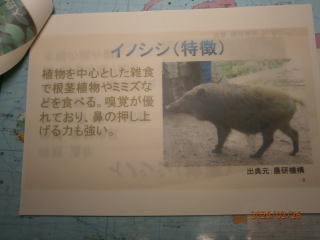 イノシシ(特徴)
植物を中心とした雑食
で根茎植物やミミズな
どを食べる。嗅覚が優
れており、鼻の押し上
げる力も強い。
出典元:農研機構